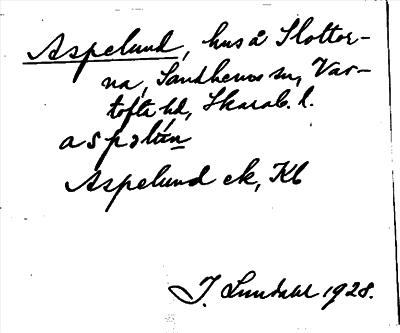 Aspelund, hus å Slottor-
na, Sandhems sn, Var-
tofta hd, Skarab. l.
aspəlun
Aspelund ek, Kb
J. Lundahl 1928.